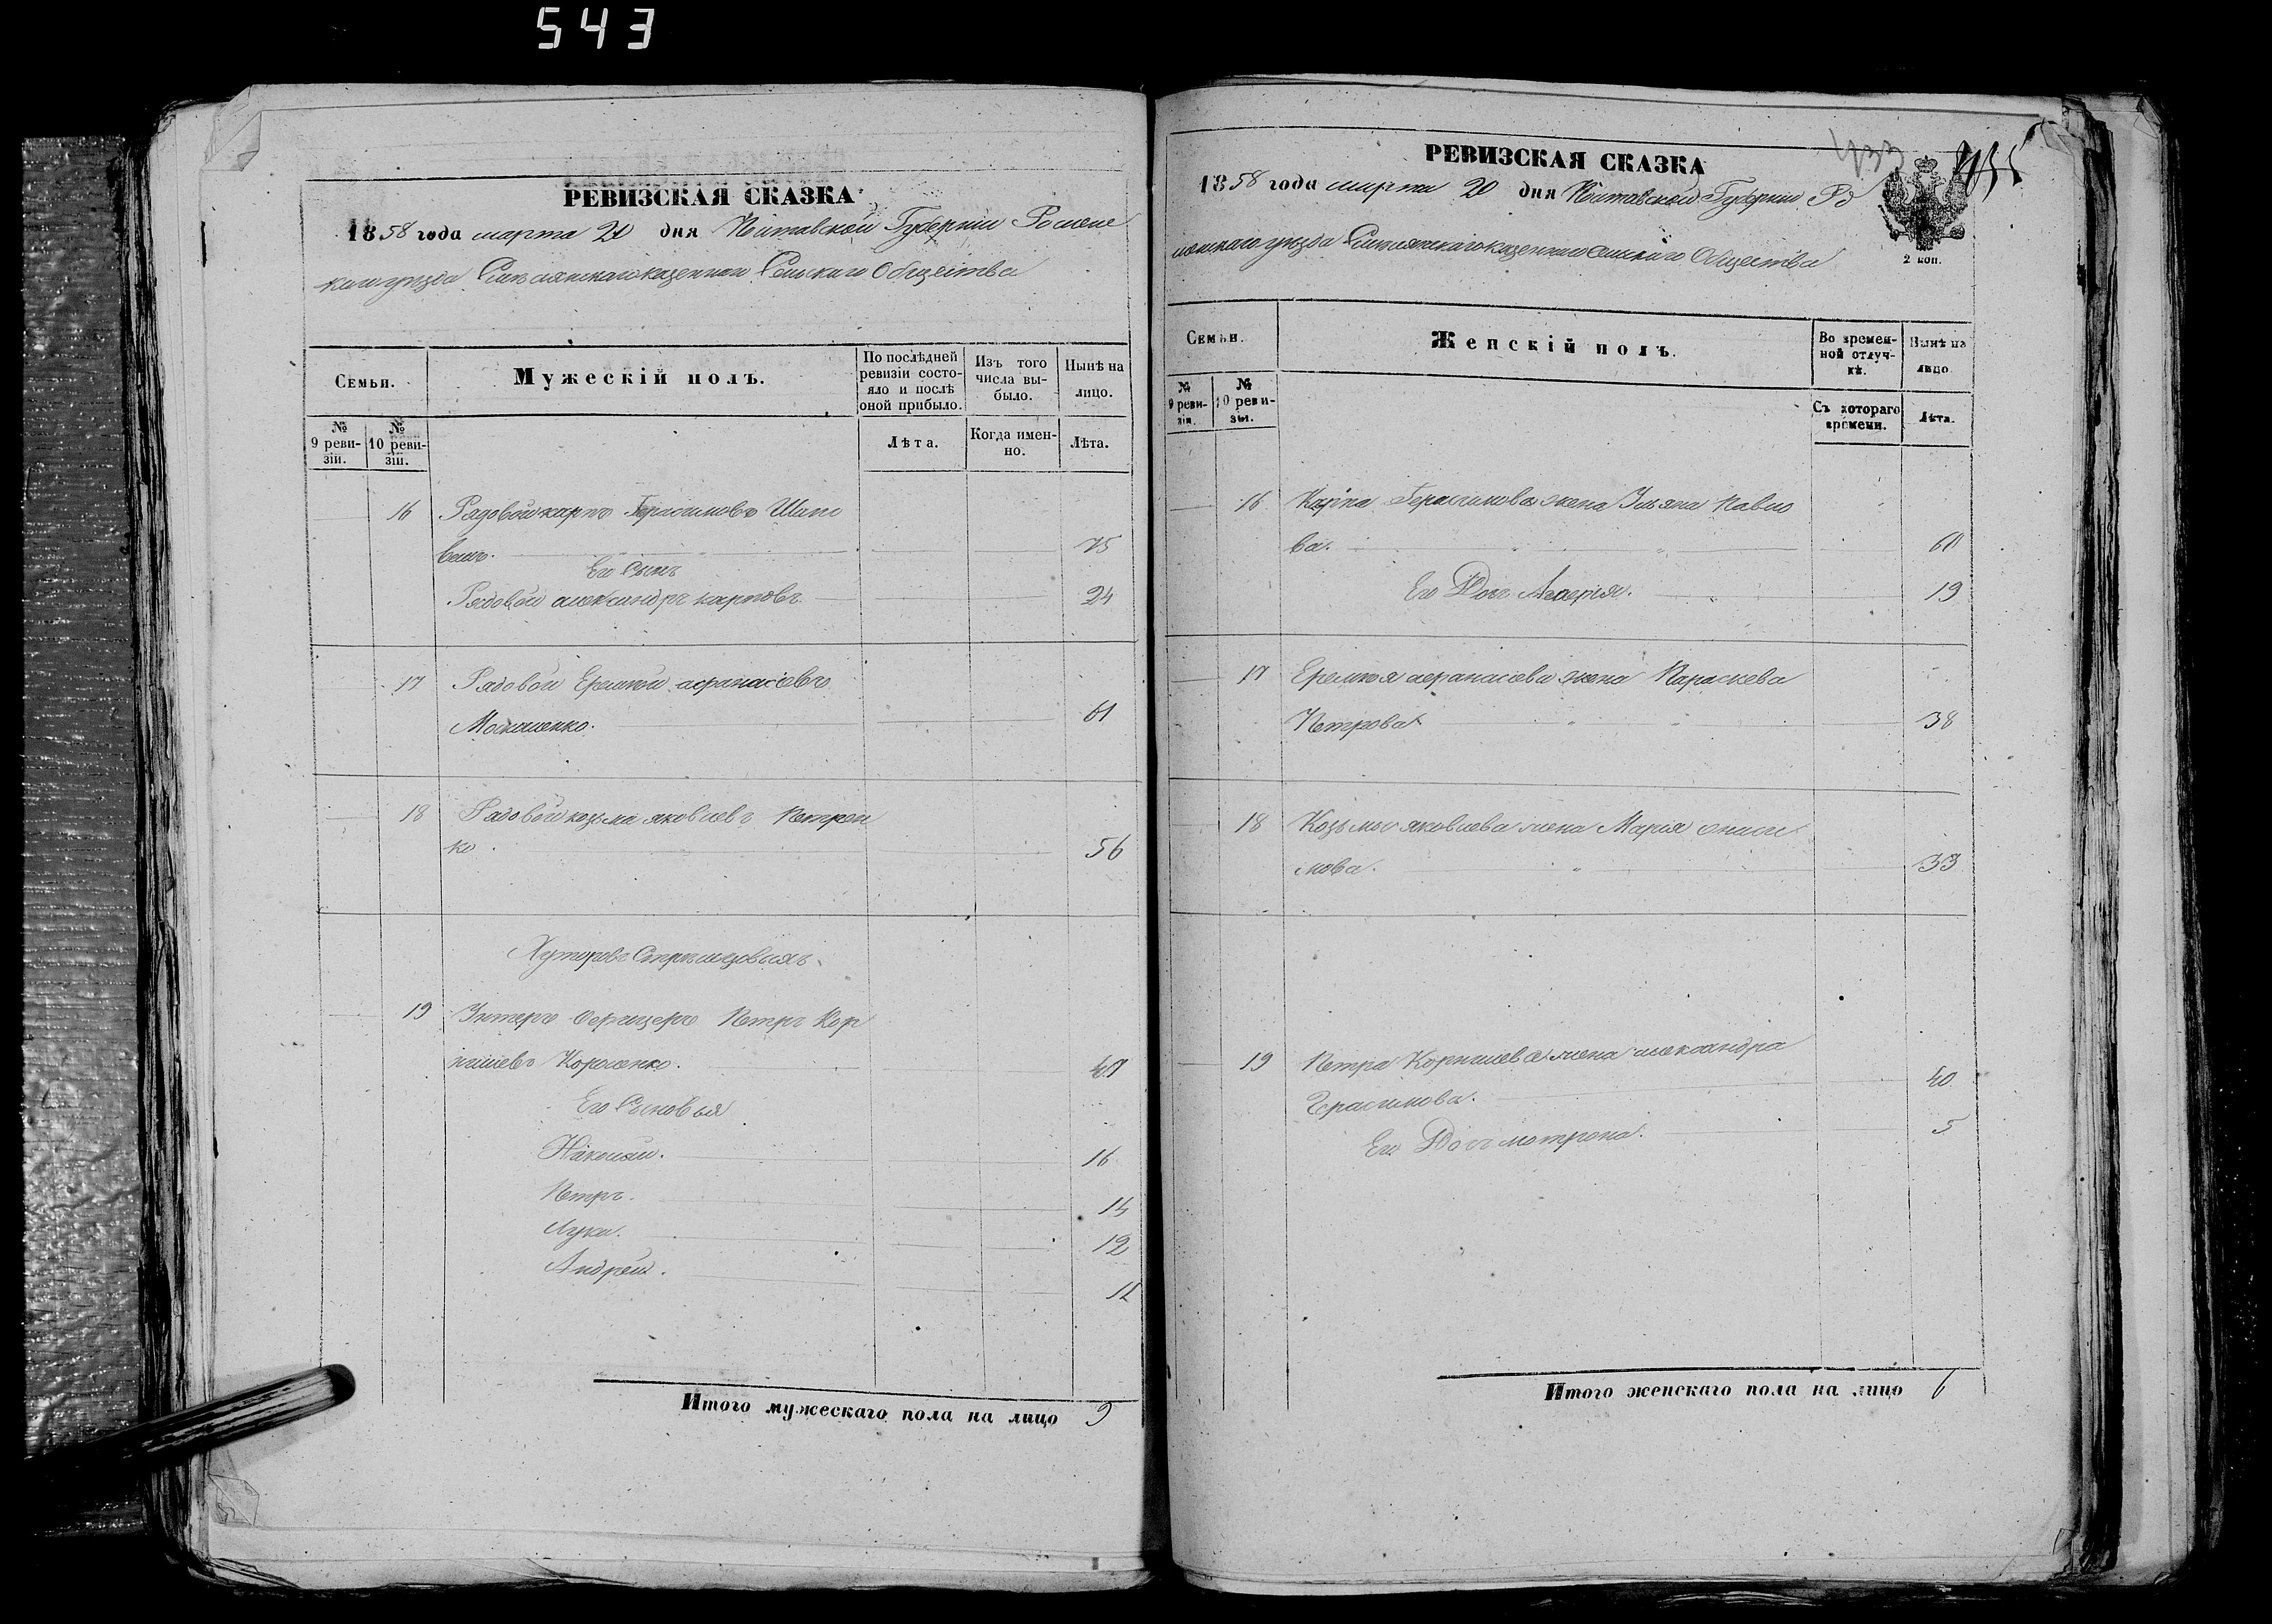 543
РЕВИЗСКАЯ СКАЗКА
1858 года марта 20 дня Полтавской Губернiи Ромен
скаго уѣзда казеннаго Сельскаго Общества
Семьи.
Мужескiй полъ.
По послѣдней ревизiи состояло и послѣ оной прибыло.
Изъ того числа выбыло.
Нынѣ на лицо.
№ 9 ревизiи.
№ 10 ревизiи.
Лѣта.
Когда именно.
Лѣта.
16 Рядовой карпъ Герасимовъ
75
Его Сынъ
Рядовой александръ карповъ 24
17 Рядовой Еремѣй афанасiевъ
61
18 Рядовой козьма яковлевъ Петрен
ко 56
Хуторовъ
19 Унтеръ Офицеръ Петръ Кор
нилiевъ Короленко. 49
Его Сыновья
Николай. 16
Петръ. 14
Лука. 12
Андрей. 11
Итого мужескаго пола на лицо 9
433
РЕВИЗСКАЯ СКАЗКА
1858 года марта 20 дня Полтавской Губернiи Ро
менскаго уѣзда казеннаго сельскаго Общества
2 коп.
Семьи.
Женскiй полъ.
Во временной отлучкѣ.
Нынѣ на лицо
№ 9 ревизiи.
№ 10 ревизiи.
Съ котораго времени.
Лѣта.
16 Карпа Герасимова жена Ульяна Павло
ва. 60
Его Дочь 19
17 Еремѣя афанасiева жена Параскева
Петрова 38
18 Козьмы яковлева жена Марiя ониси
мова. 33
19 Петра Корнилiева жена александра
Герасимова. 40
Его Дочь мотрона. 5
Итого женскаго пола на лицо 6